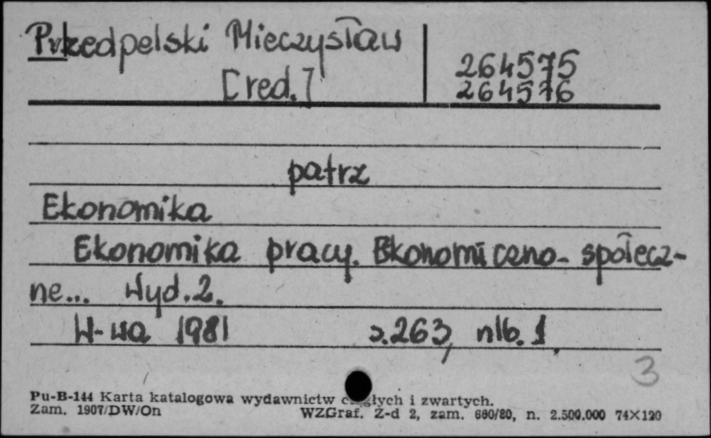 Przedpelski Mieczysław
[red.]
264575
264576
patrz
Ekonomika
Ekonomika pracy. Ekonomiczno-społecz-
ne... Wyd. 2.
W-wa 1981 s. 263, nlb. 1.
3
Pu-B-144 Karta katalogowa wydawnictw ciągłych i zwartych.
Zam. 1907/DW/On WZGraf. Z-d 2, zam. 660/80, n. 2.500.000 74×120